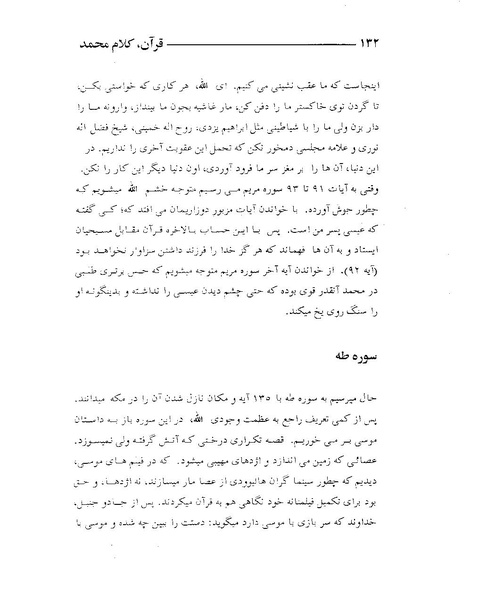 ۱۳۲ ــــــــــــــــــــــــــــ قرآن، کلام محمد
اینجاست که ما عقب نشینی می کنیم. ای الله، هر کاری که خواستی بکن،
تا گردن توی خاکستر ما را دفن کن، مار غاشیه بجون ما بینداز، وارونه ما را
دار بزن ولی ما را با شیاطینی مثل ابراهیم یزدی، روح اله خمینی، شیخ فضل اله
نوری و علامه مجلسی دمخور نکن که تحمل این عقوبت آخری را نداریم. در
این دنیا، آن ها را بر مغز سر ما فرود آوردی، اون دنیا دیگر این کار را نکن.
وقتی به آیات ۹۱ تا ۹۳ سوره مریم می رسیم متوجه خشم الله میشویم که
چطور جوش آورده. با خواندن آیات مزبور دوزاریمان می افتد که؛ کسی گفته
که عیسی پسر من است. پس با این حساب بالاخره قرآن مقابل مسیحیان
ایستاد و به آن ها فهماند که هر گز خدا را فرزند داشتن سزاوار نخواهد بود
(آیه ۹۲). از خواندن آیه آخر سوره مریم متوجه میشویم که حس برتری طلبی
در محمد آنقدر قوی بوده که حتی چشم دیدن عیسی را نداشته و بدینگونه او
را سنگ روی یخ میکند.
سوره طه
حال میرسیم به سوره طه با ۱۳۵ آیه و مکان نازل شدن آن را در مکه میدانند.
پس از کمی تعریف راجع به عظمت وجودی الله، در این سوره باز به داستان
موسی بر می خوریم. قصه تکراری درختی که آتش گرفته ولی نمیسوزد.
عصائی که زمین می اندازد و اژدهای مهیبی میشود. که در فیلم های موسی،
دیدیم که چطور سینما گران هالیوودی از عصا مار میسازند، نه اژدها، و حق
بود برای تکمیل فیلمنامه خود نگاهی هم به قرآن میکردند. پس از جادو جنبل،
خداوند که سر بازی با موسی دارد میگوید: دستت را ببین چه شده و موسی با